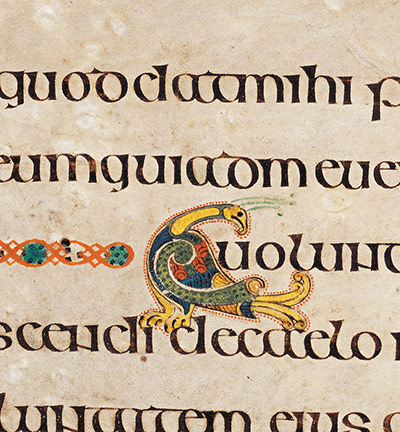 quod dat mihi p
eum qui ad me ue
uolunt
scendi de caelo n
luntatem eius q